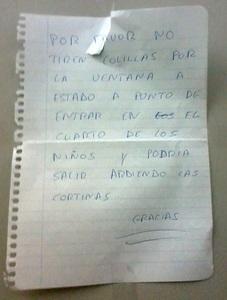 POR FAVOR NO
TIREN COLILLAS POR
LA VENTANA A
ESTADO A PUNTO DE
ENTRAR EN LOS EL
CUARTO DE LOS
NIÑOS Y PODRIA
SALIR ARDIENDO LAS
CORTINAS
GRACIAS